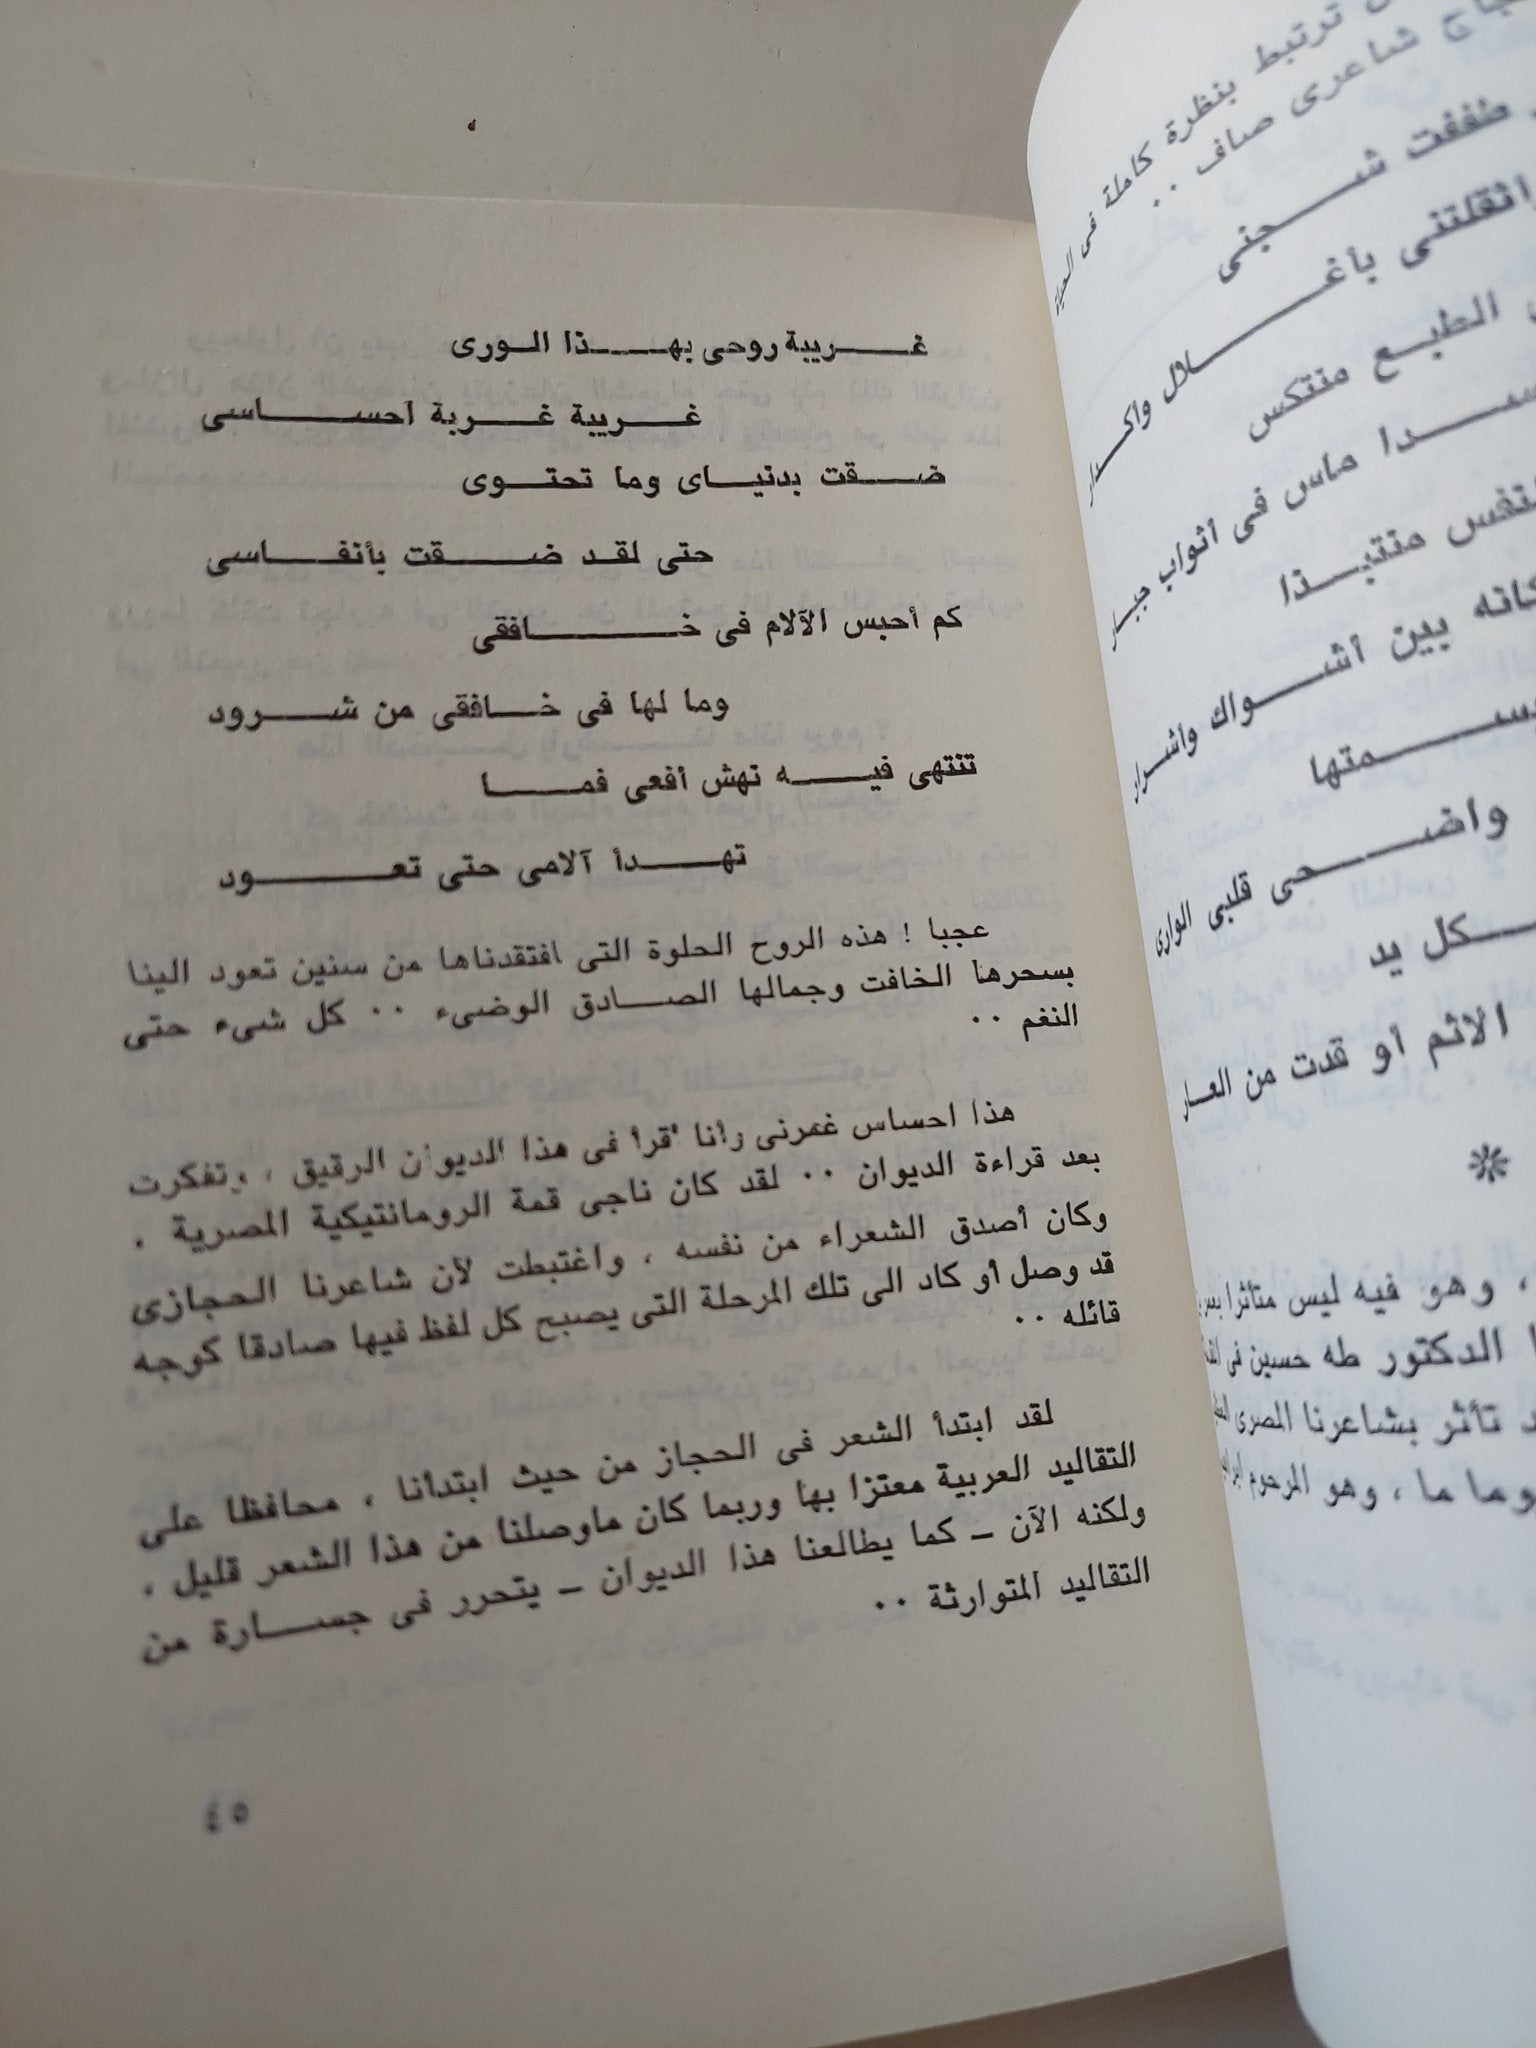 غريبة روحى بهذا الورى
غريبة غربة احساسى
ضقت بدنياى وما تحتوى
حتى لقد ضقت بأنفاسى
كم أحبس الآلام فى خافقى
وما لها فى خافقى من شرود
تنتهى فيه نهش أفعى فما
تهدأ آلامى حتى تعود
عجبا ! هذه الروح الحلوة التى افتقدناها من سنين تعود الينا
بسحرها الخافت وجمالها الصادق الوضىء ٠٠ كل شىء حتى
النغم ٠٠
هذا احساس غمرنى وأنا أقرأ فى هذا الديوان الرقيق ، وتفكرت
بعد قراءة الديوان ٠٠ لقد كان ناجى قمة الرومانتيكية المصرية .
وكان أصدق الشعراء من نفسه ، واغتبطت لأن شاعرنا الحجازى
قد وصل أو كاد الى تلك المرحلة التى يصبح كل لفظ فيها صادقا كوجه
قائله ٠٠
لقد ابتدأ الشعر فى الحجاز من حيث ابتدأنا ، محافظا على
التقاليد العربية معتزا بها وربما كان ماوصلنا من هذا الشعر قليل ،
ولكنه الآن – كما يطالعنا هذا الديوان – يتحرر فى جسارة من
التقاليد المتوارثة ٠٠
٥٤
ترتبط بنظرة كاملة فى الحياة
شاعرى صاف ٠٠
طففت شجنى
اثقلتنى بأغلال وأكدار
الطبع منتكس
ماس فى أثواب جبار
منتبذا
كانه بين أشواك وأشرار
واضحى قلبى الوارى
كل يد
الاثم أو قدت من العار
*
، وهو فيه ليس متأثرا
الدكتور طه حسين فى
تأثر بشاعرنا المصرى
وما ما ، وهو المرحوم